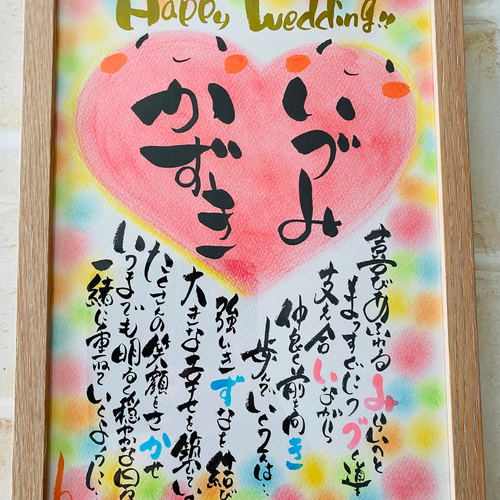 Happy Wedding!!
いづみ
かずき
喜びあふれる みらいへと
まっすぐにつづく道
支え合いながら
仲良く前を向き
歩んでいく2人は…
強いきずなを結び
大きな幸せを築いてい
たくさんの笑顔をさかせ
いつまでも明るく穏やかな日
一緒に重ねていくように…